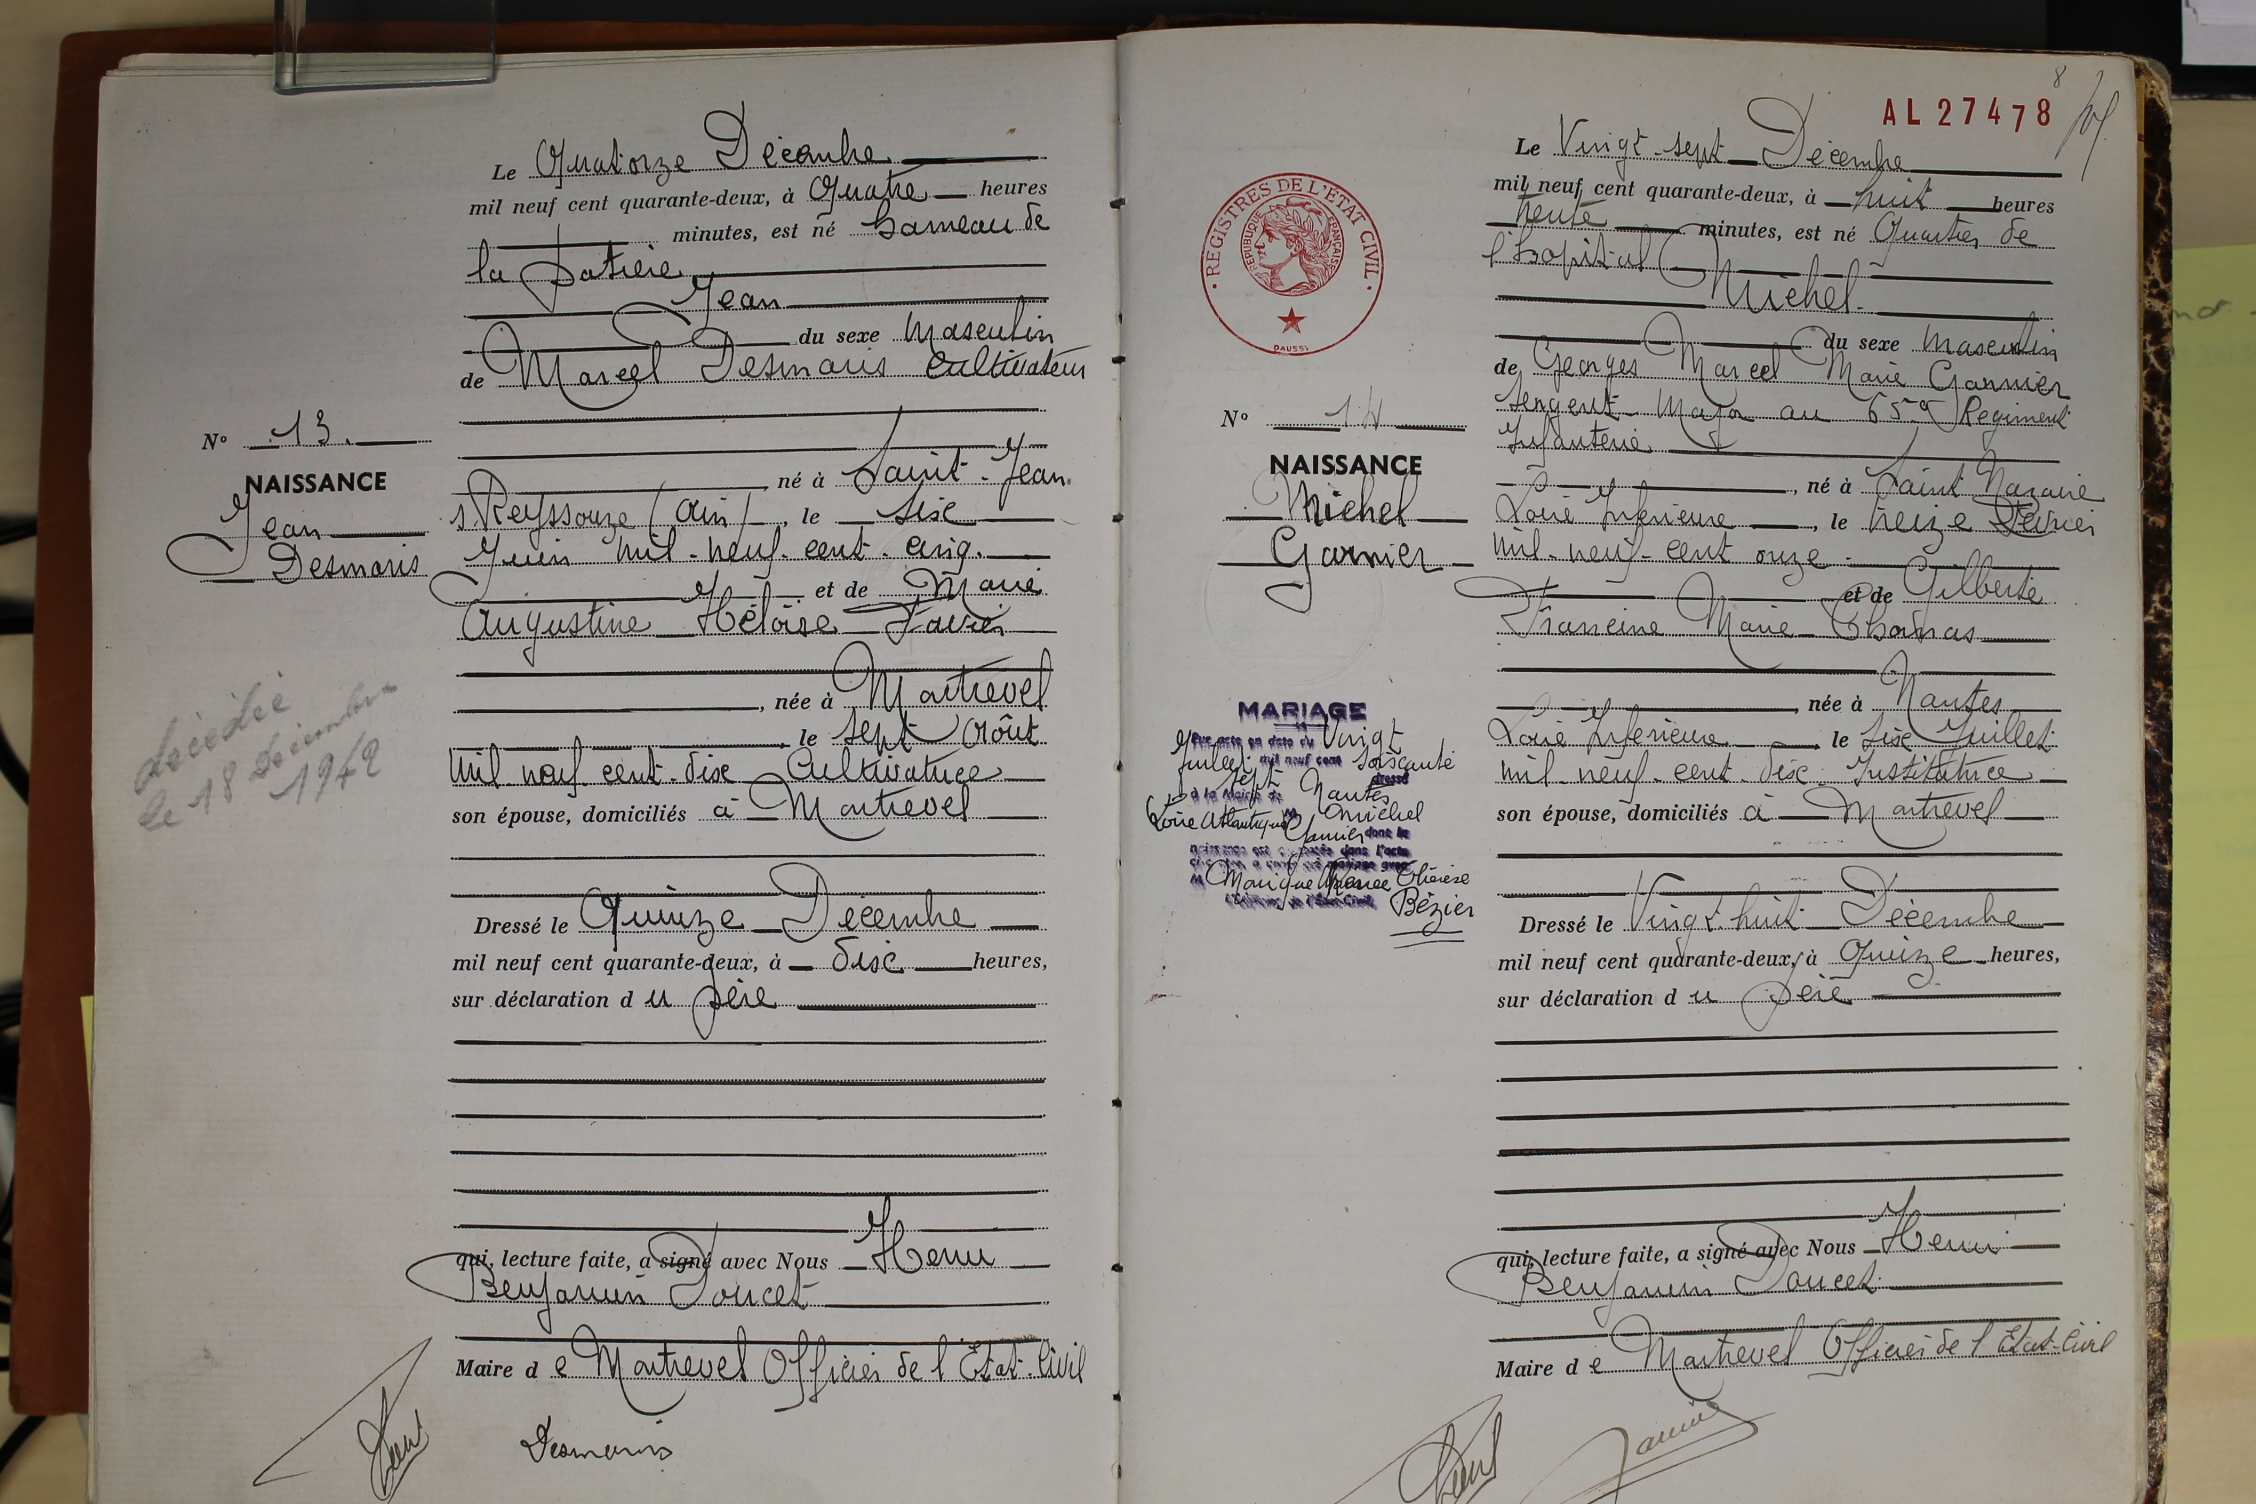 Le Quatorze Décembre
mil neuf cent quarante-deux, à Quatre heures
minutes, est né hameau de
la
Jean
du sexe Masculin
de Marcel Desmaris Cultivateur
N° 13.
NAISSANCE
Jean
Desmaris
né à Saint-Jean
s/Reyssouze (Ain), le six
Juin mil-neuf-cent-cinq.
et de Marie
Augustine Héloïse Favier
née à Montrevel
le sept Août
mil neuf cent-dix Cultivatrice
son épouse, domiciliés à Montrevel
décédé
le 18 Décembre
1942
Dressé le Quinze Décembre
mil neuf cent quarante-deux, à dix heures,
sur déclaration du père
qui, lecture faite, a signé avec Nous Henri
Benjamin Doucet
Maire de Montrevel Officier de l'Etat-Civil
Desmaris
8
AL 27478
Le Vingt-sept Décembre
mil neuf cent quarante-deux, à huit heures
trente minutes, est né Quartier de
l'hopital
Michel
du sexe Masculin
de Georges Marcel Marie Garnier
Sergent-Major au 65e Regiment
Infanterie
REGISTRES DE L'ÉTAT CIVIL
RÉPUBLIQUE FRANÇAISE
DAUSSI
N° 14
NAISSANCE
Michel
Garnier
, né à Saint Nazaire
Loire Inférieure, le treize Février
mil-neuf-cent onze
et de Gilberte
Francine Marie Thomas
née à Nantes
Loire Inférieure, le six Juillet
mil-neuf-cent-dix Institutrice
son épouse, domiciliés à Montrevel
MARIAGE
Par acte en date du Vingt
Juillet mil neuf cent soixante
sept dressé
à la Mairie de Nantes
Loire Atlantique Michel
Garnier dont la
naissance est dans l'acte
mariage avec
M Monique Thérèse
Bézier
l'Officier de l'État-Civil
Dressé le Vingt-huit Décembre
mil neuf cent quarante-deux, à Quinze heures,
sur déclaration du père
qui, lecture faite, a signé avec Nous Henri
Benjamin Doucet
Maire de Montrevel Officier de l'Etat-Civil